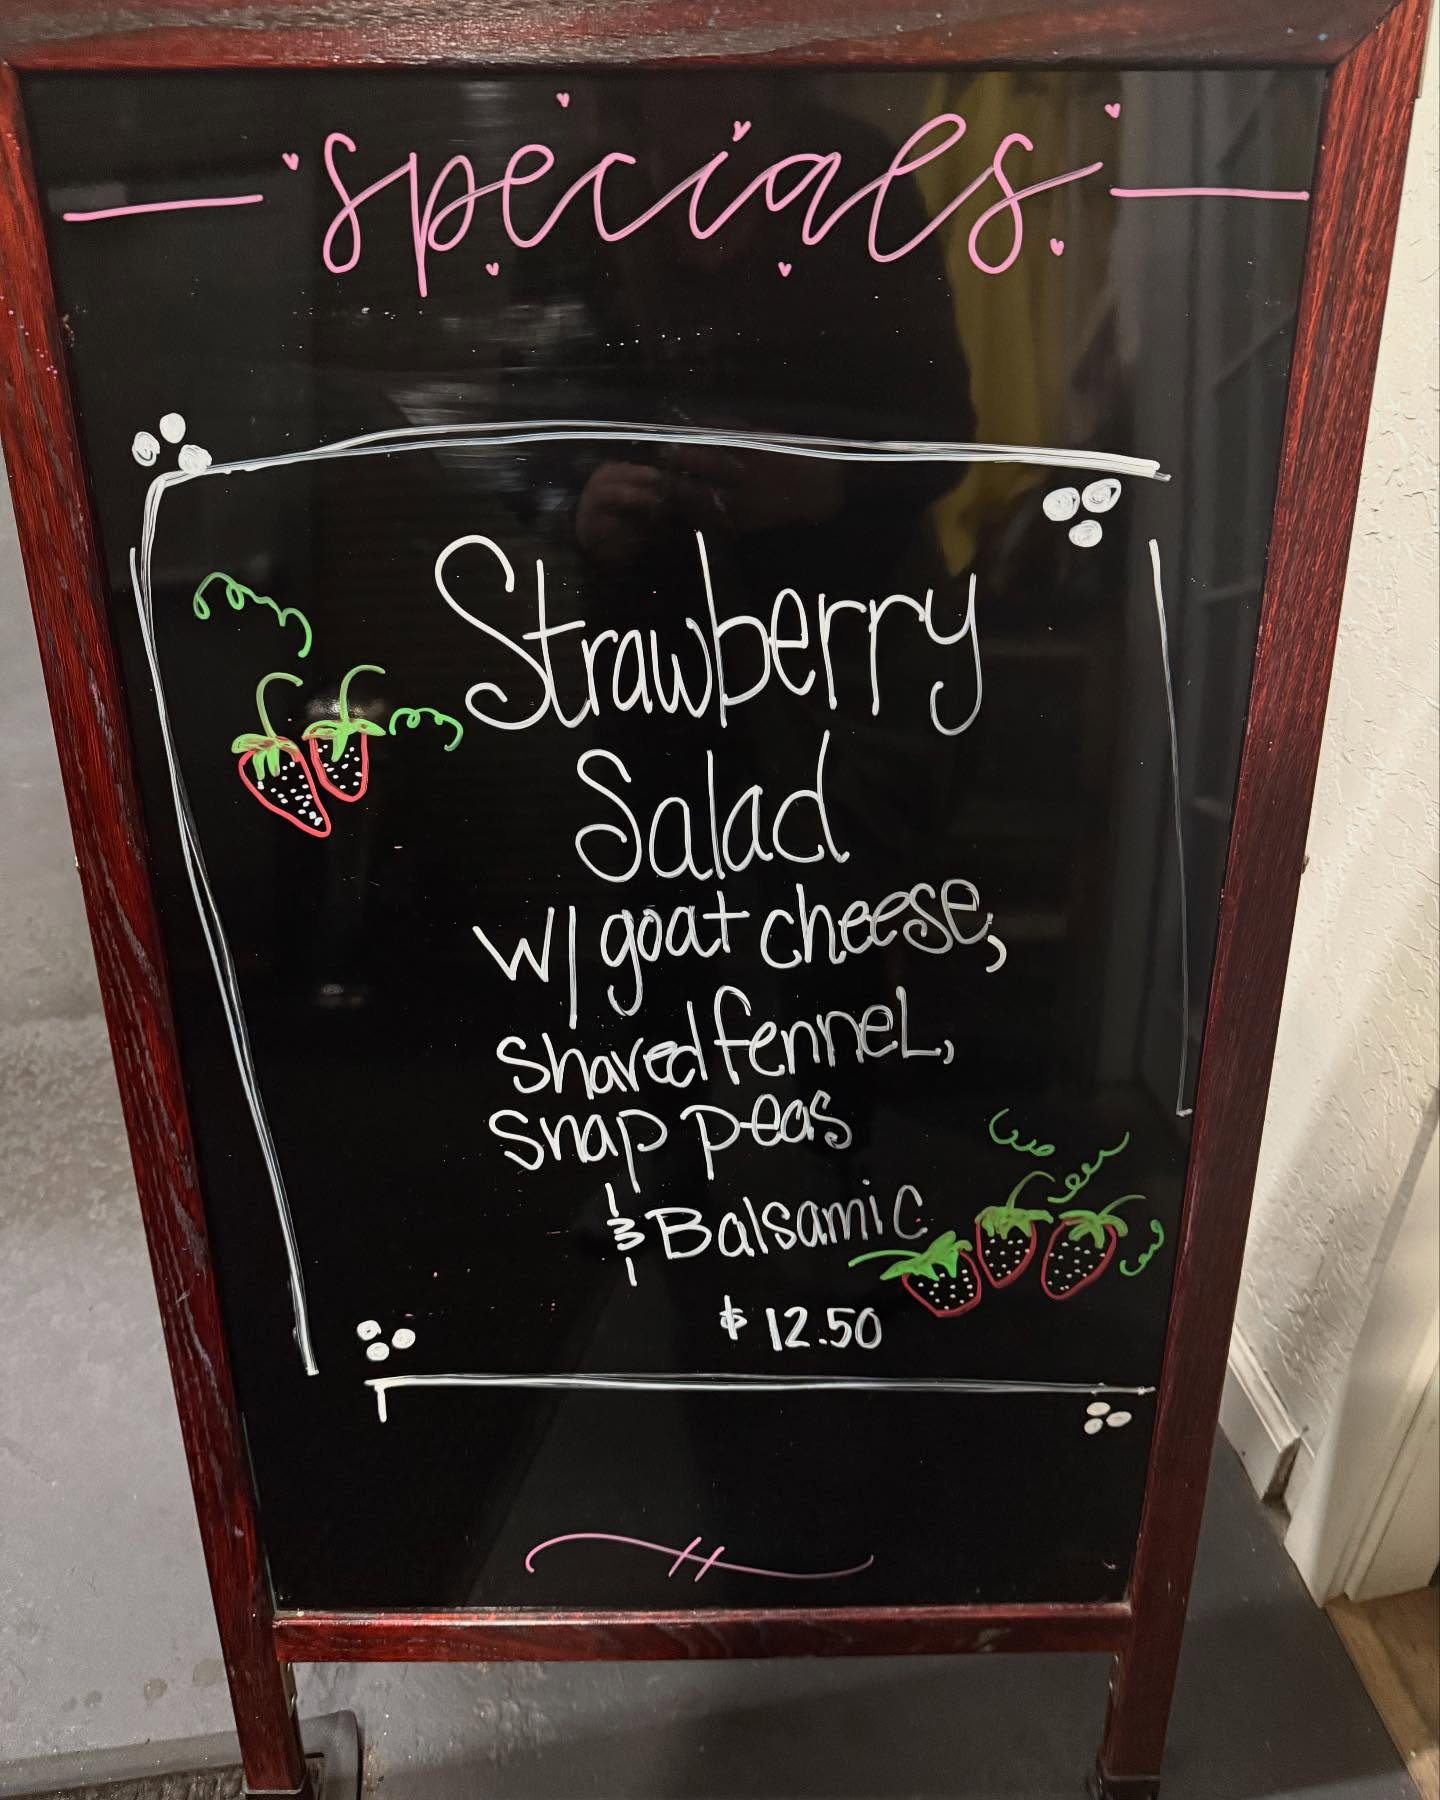 specials
Strawberry
Salad
w/ goat cheese,
shaved fennel,
snap peas
& Balsamic
$ 12.50